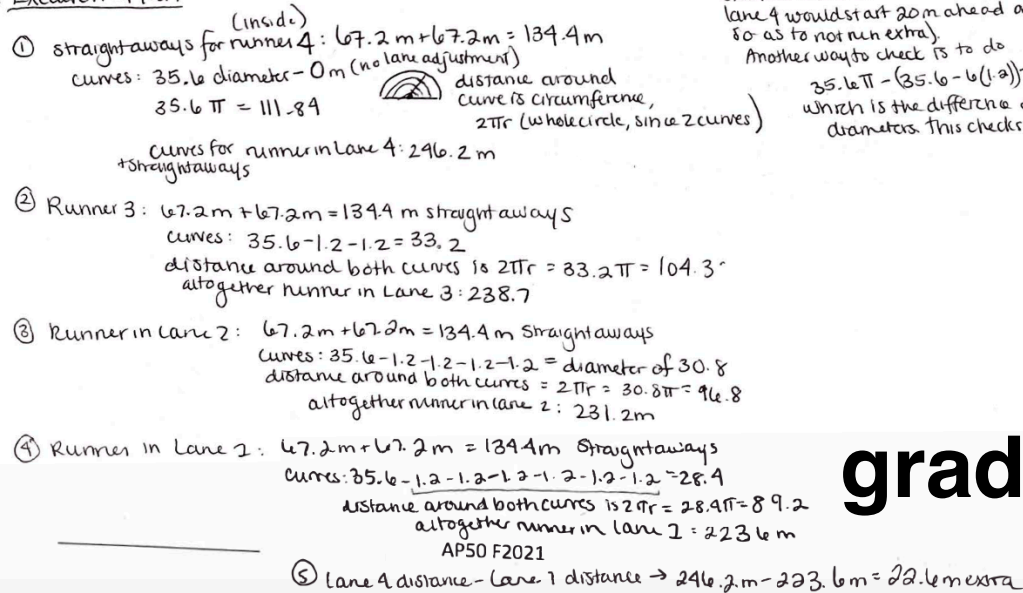 (inside)
① straightaways for runner 4: 67.2m+67.2m = 134.4m
curves: 35.6 diameter - 0m (no lane adjustment)
35.6 π = 111.84
distance around
curve is circumference,
2πr (whole circle, since 2 curves)
curves for runner in Lane 4: 246.2 m
+straightaways
lane 4 would start 20m ahead
so as to not run extra).
Another way to check is to do
35.6π-(35.6-6(1.2))
which is the difference
diameters. This checks
② Runner 3: 67.2m+67.2m=134.4 m straightaways
curves: 35.6-1.2-1.2=33.2
distance around both curves is 2πr = 33.2π = 104.3
altogether runner in Lane 3: 238.7
③ Runner in lane 2: 67.2m+67.2m=134.4m Straightaways
curves: 35.6-1.2-1.2-1.2-1.2 = diameter of 30.8
distance around both curves = 2πr = 30.8π = 96.8
altogether runner in lane 2: 231.2m
④ Runner in Lane 1: 67.2m+67.2m = 134.4m Straightaways
curves: 35.6-1.2-1.2-1.2-1.2-1.2-1.2=28.4
distance around both curves is 2πr = 28.4π=89.2
altogether runner in lane 1: 223.6m
grad
AP50 F2021
⑤ lane 4 distance - Lane 1 distance → 246.2m-223.6m=22.6m extra